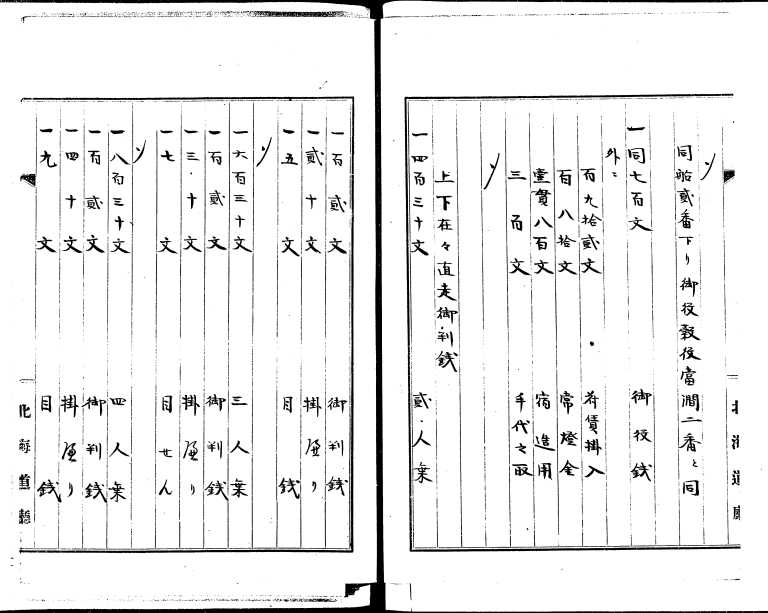 〆
同船貳番下り御役穀役當澗二番と同
一同七百文 御役銭
外ニ
百九拾貳文 荷賃掛入
百八拾文 常燈金
壹貫八百文 宿造用
三百文 手代之取
〆
上下在々直走御判銭
一四百三十文 貳人乗
一百貳文 御判銭
一貳十文 掛廻り
一五文 目銭
〆
一六百三十文 三人乗
一百貳文 御判銭
一三十文 掛廻り
一七文 目せん
〆
一八百三十文 四人乗
一百貳文 御判銭
一四十文 掛廻り
一九文 目銭
北海道廳
北海道廳